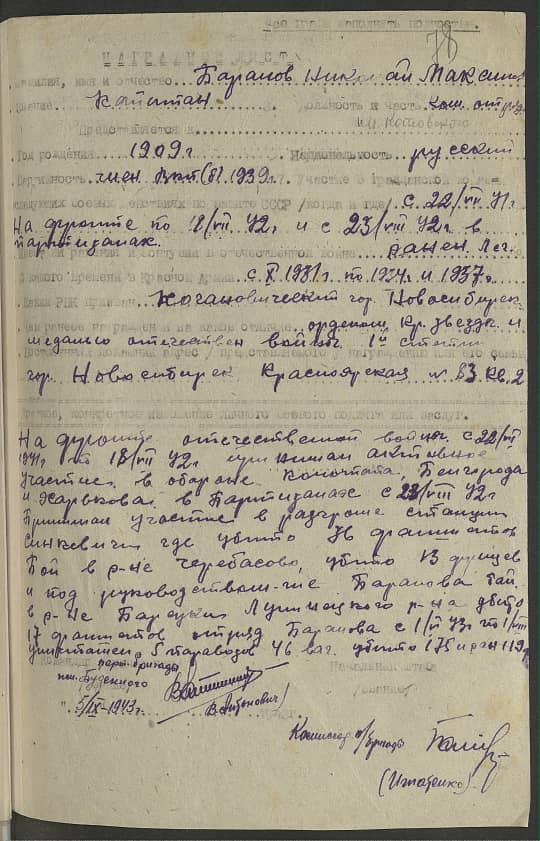 78
НАГРАДНОЙ ЛИСТ
Фамилия, имя и отчество Баранов Николай Максим
Звание Капитан должность и часть ком. отряда
им. Котовского
Представляется к
Год рождения 1909 г Национальность русский
Партийность член ВКП(б) 1939 г. Участие в гражданской
с 22/VI 41 г
На фронте по 18/VII 42 г и с 23/VIII 42 г в
партизанах.
ранения и контузии в отечественной войне ранен лег.
С какого времени в Красной Армии с X 1931 г по 1934 г и 1937 г
Каким РВК призван Кагановический гор. Новосибирск
Чем ранее награжден орденом Кр. звезды и
медалью отечествен войны 1й степ
Постоянный домашний адрес представляемого к награждению или его семьи
гор. Новосибирск Красноярская № 83 кв. 2
конкретное изложение личного боевого подвига или заслуг.
На фронте отечественной войны с 22/VI
1941 г по 18/VII 42 г принимал активное
участие в обороне Конотопа, Белгорода
и Харькова, в Партизанах с 23/VIII 42 г
Принимал участие в разгроме станции
Синкевичи где убито 76 фашистов
Бой в р-не Черебасово, убито 13 фрицев
и под руководством Баранова
в р-не Лунинецкого р-на убито
17 фашистов отряд Баранова с 1/VI 43 г по 1/VIII
5 паравозов 46 ваг. убито 175 и ран 119
Командир парт бригады
им. Буденного
Начальник штаба
В. Антонович)
" 5/IX - 1943 г.
Комиссар п/бригады
(Игнатенко)